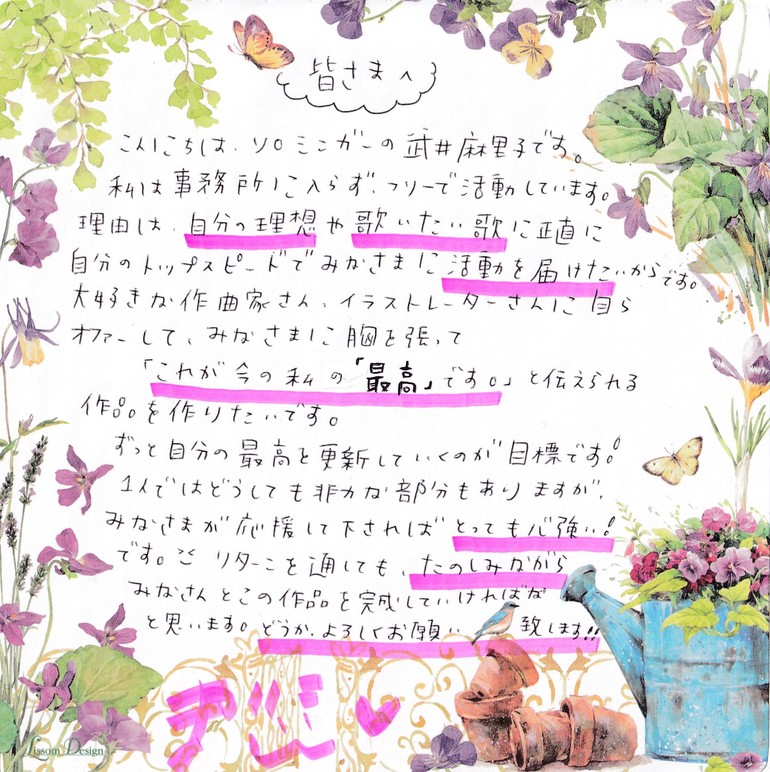 皆さまへ
こんにちは、ソロシンガーの武井麻里子です。
私は事務所に入らず、フリーで活動しています。
理由は、自分の理想や歌いたい歌に正直に
自分のトップスピードでみなさまに活動を届けたいからです。
大好きな作曲家さん、イラストレーターさんに自ら
オファーして、みなさまに胸を張って
「これが今の私の「最高」です。」と伝えられる
作品を作りたいです。
ずっと自分の最高を更新していくのが目標です!
1人ではどうしても非力な部分もありますが、
みなさまが応援して下さればとっても心強い!
です。リターンを通しても、たのしみながら
みなさんとこの作品を完成していければな
と思います。どうか、よろしくお願い致します!!
Lissom Design